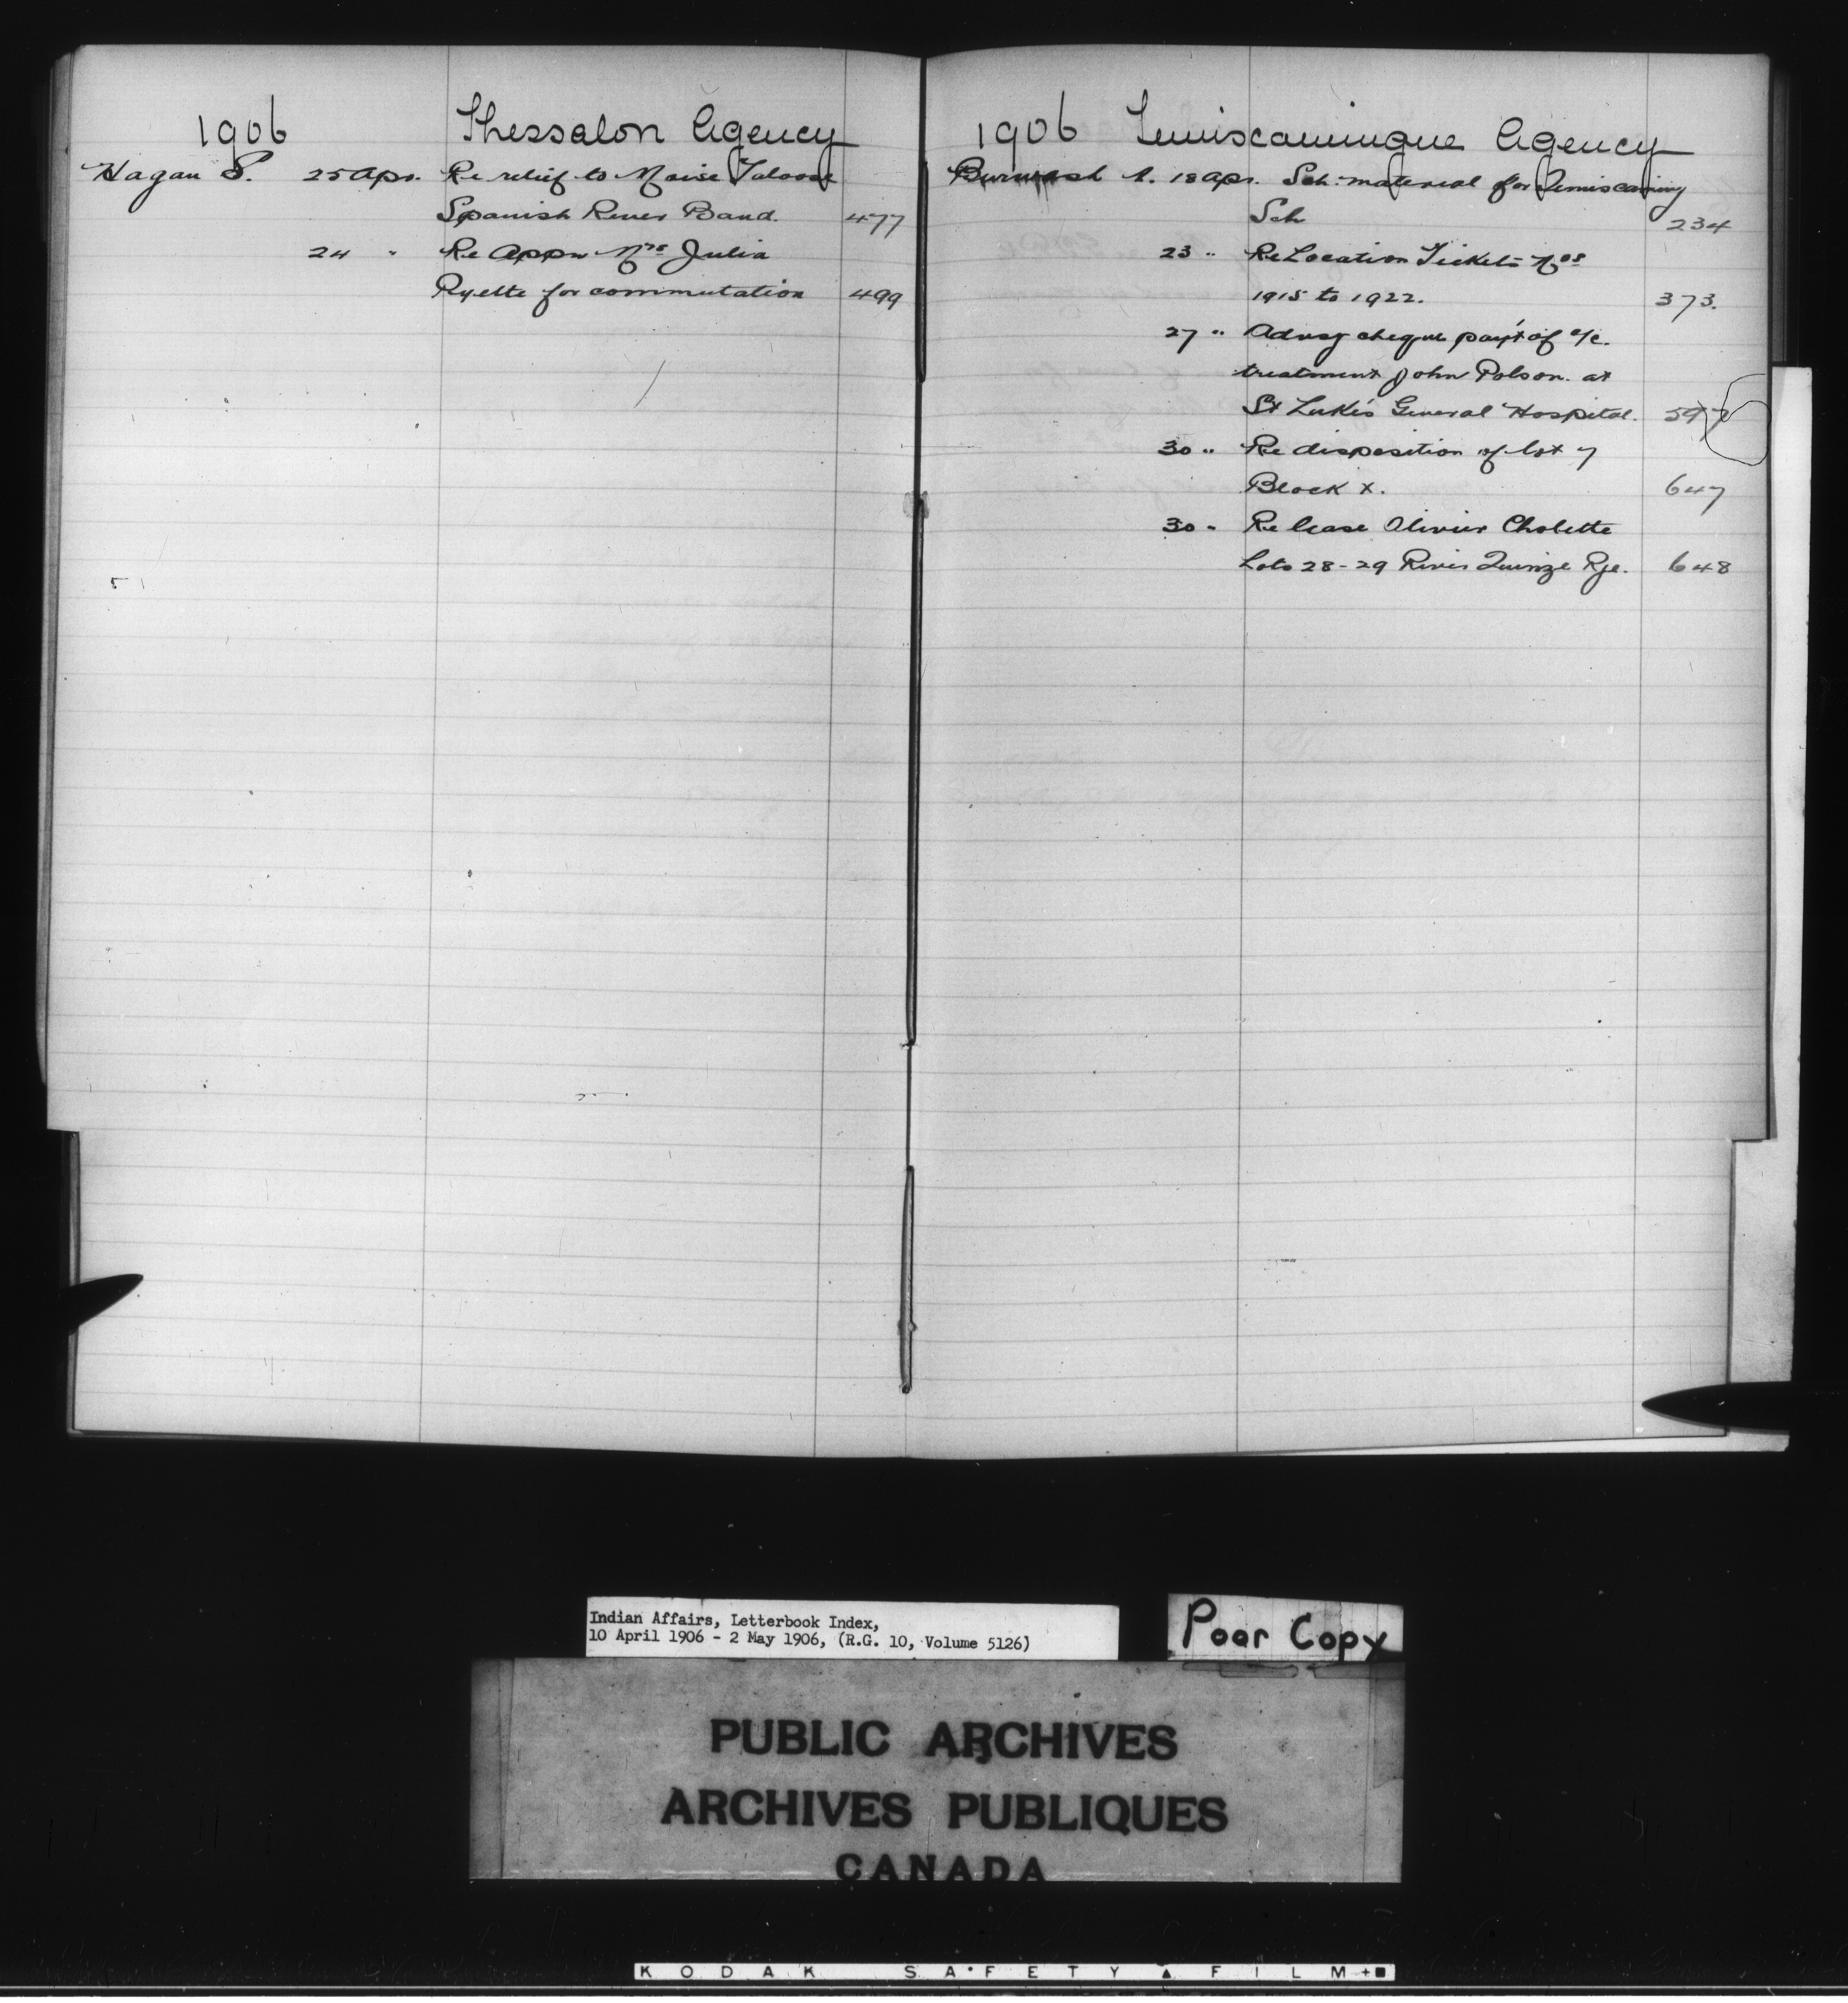 1906 Thessalon Agency
Hagan S. 25 Apr. Re relief to Moise
Spanish River Band. 477
24 " Re Appn Mrs Julia
Ryette for commutation 499
1906 Temiscamingue Agency
Burwash A. 18 Apr. Sch. material for Temiscaming
Sch 234
23 " Re Location Tickets Nos
1915 to 1922. 373.
27 " Advsg cheque pay't of a/c.
treatment John Polson. at
St Luke's General Hospital. 597
30 " Re disposition of lot 7
Block X. 647
30 " Re lease Olivier Cholette
Lots 28-29 River Quinze Rge. 648
Indian Affairs, Letterbook Index,
10 April 1906 - 2 May 1906, (R.G. 10, Volume 5126)
Poor Copy
PUBLIC ARCHIVES
ARCHIVES PUBLIQUES
CANADA
KODAK SAFETY FILM